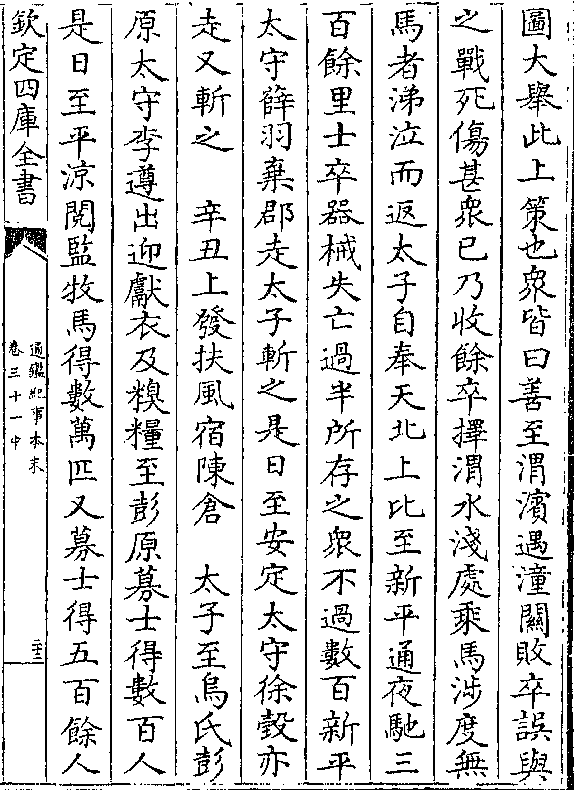 圖大舉此上策也衆皆曰善至渭濱遇潼關敗卒誤與
之戰死傷甚衆已乃收餘卒擇渭水淺處乘馬涉度無
馬者涕泣而返太子自奉天北上比至新平通夜馳三
百餘里士卒器械失亡過半所存之衆不過數百新平
太守薛羽棄郡走太子斬之是日至安定太守徐瑴亦
走又斬之　辛丑上發扶風宿陳倉　太子至烏氏彭
原太守李遵出迎獻衣及糗糧至彭原募士得數百人
是日至平涼閱監牧馬得數萬匹又募士得五百餘人
欽定四庫全書
通鑑紀事本末
卷三十一中
二十二